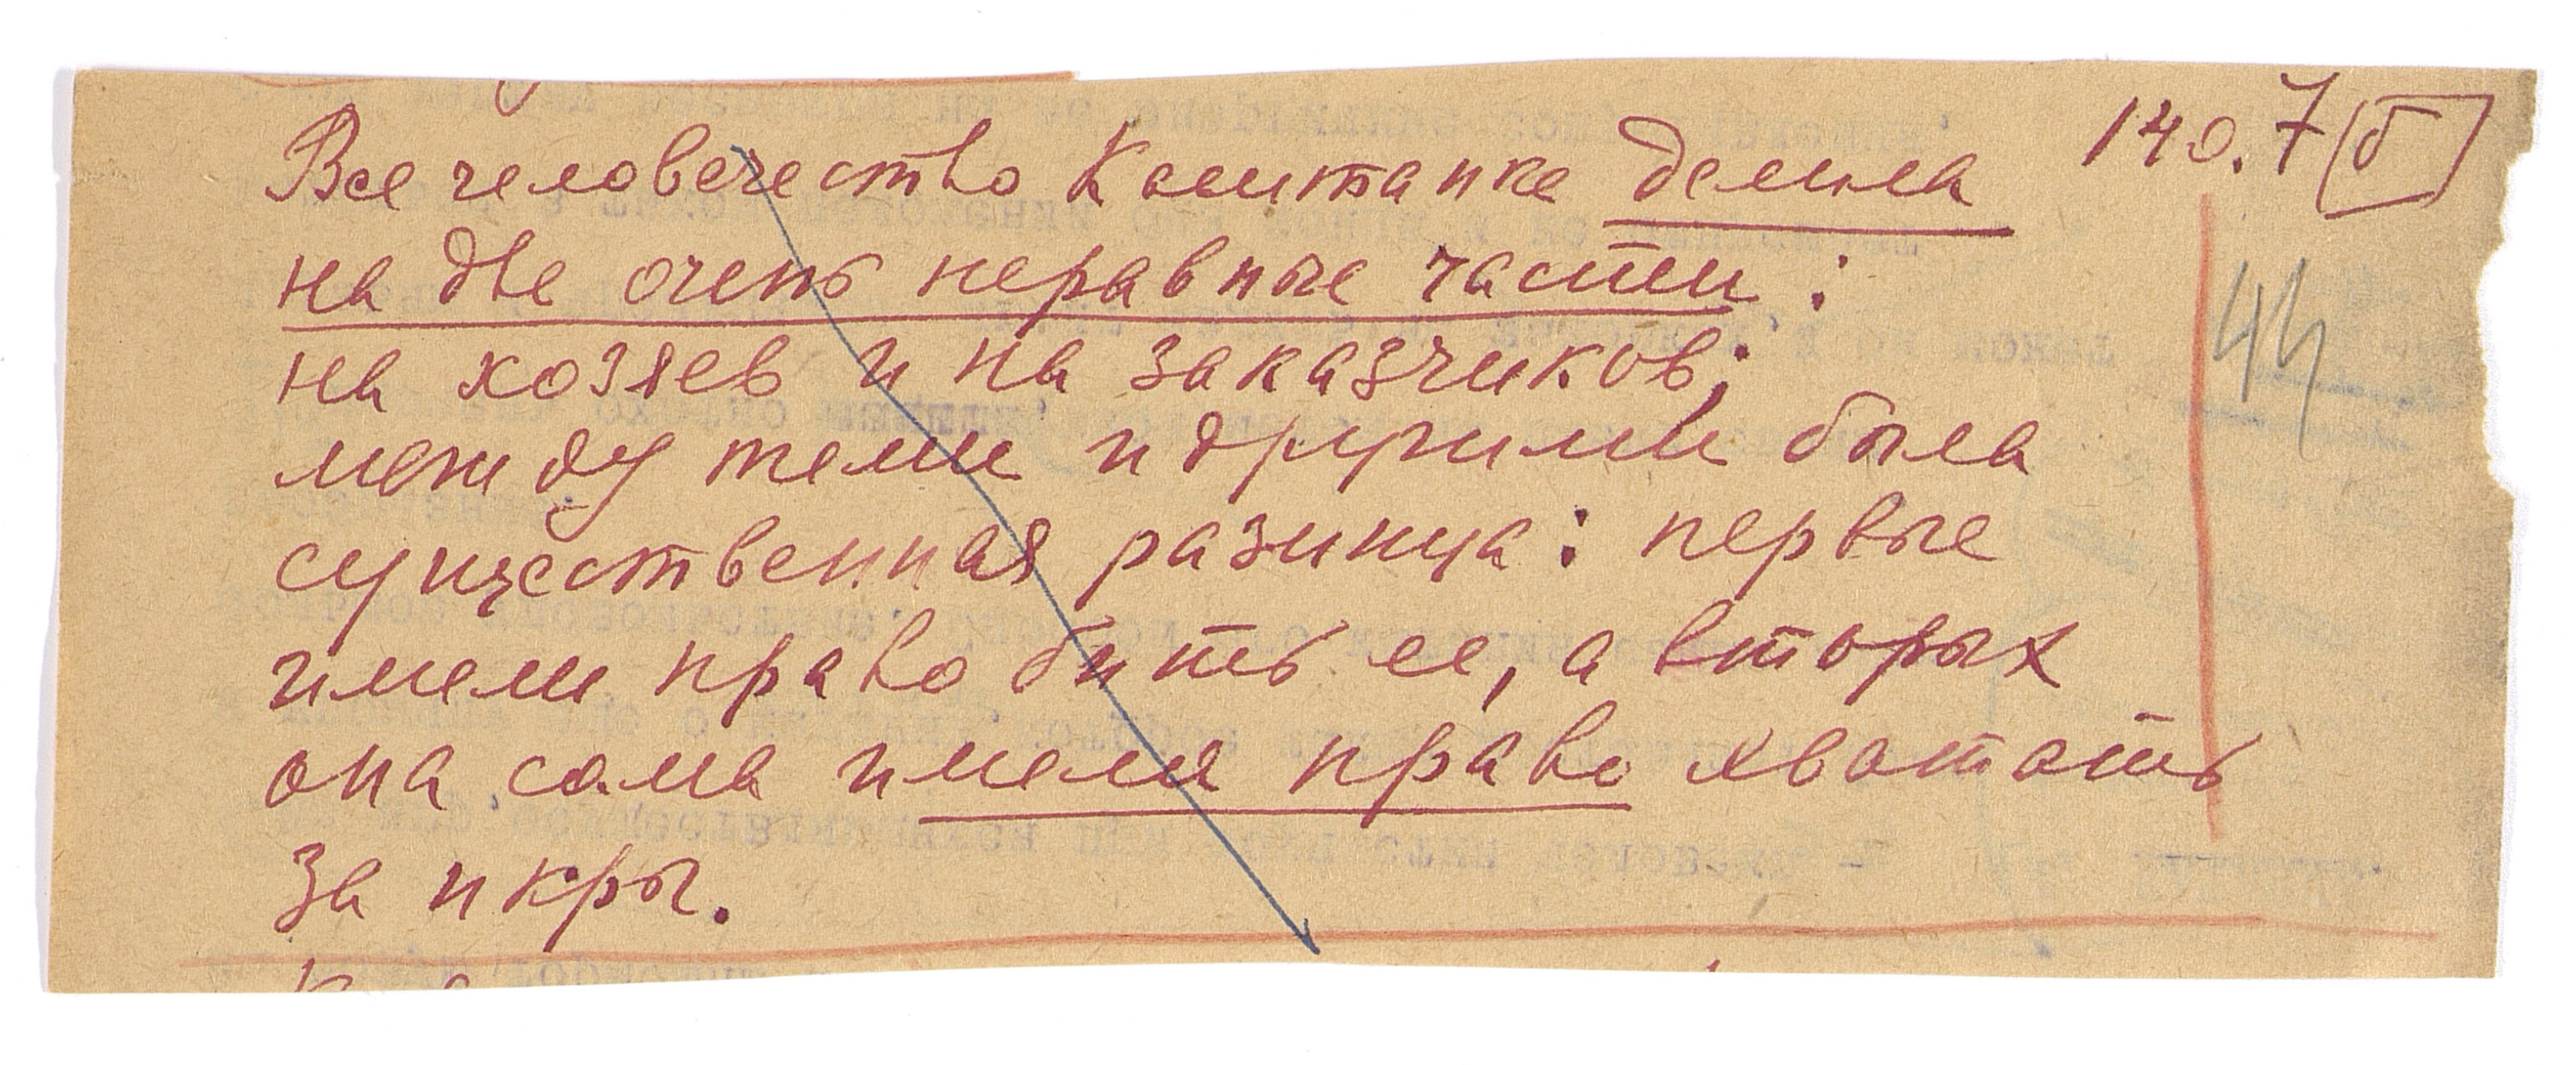 140.7 (б)
Все человечество Каштанка делила
на две очень неравные части:
на хозяев и на заказчиков;
44
между теми и другими была
существенная разница: первые
имели право бить ее, а вторых
она сама имела право хватать
за икры.